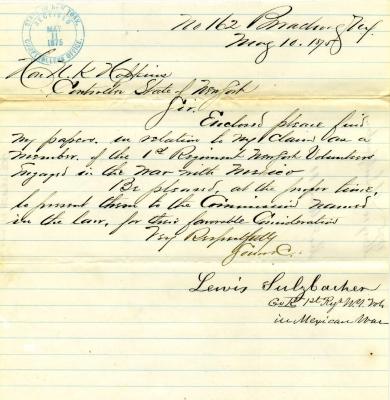 STATE OF NEW YORK
RECEIVED
MAY
1875
COMPTROLLER'S OFFICE
No 162 Broadway N.Y.
May 10. 1875
Hon. N. K. Hopkins
Controller State of New York
Sir.
Enclosed please find
my papers. in relation to my claim as a
member. of the 1st Regiment New York Volunteers
engaged in the war with Mexico
Be pleased, at the proper time,
to present them to the Commission named
in the law, for their favorable Consideration
Very Respectfully
Yours &c.
Lewis Sulzbacher
Co 1st Regt N.Y. Vols
in Mexican War